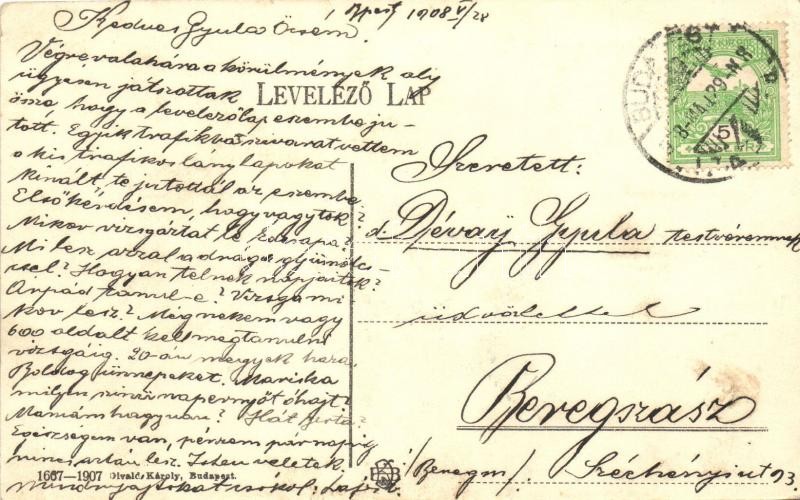 Bpest 1908 V/28
Kedves Gyula Öcsém!
Végrevalahára a körülmények oly
ügyesen játszottak
össze hogy a levelezőlap eszembe ju-
tott. Egyik trafikba szivart vettem
a kis trafikos lány lapokat
kinált, te jutottál az eszembe.
Első kérdésem, hogy vagytok?
Mikor vizsgáztat le Édesapa?
Mi lesz azzal a drága gyümölcs-
csel? Hogyan telnek napjaitok?
Árpád tanul-e? Vizsga mi-
kor lesz? Még nekem vagy
600 oldalt kell megtanulni
vizsgáig. 20-án megyek haza.
Boldog ünnepeket. Mariska
milyen színű napernyőt óhajt?
Mamám hogy van? Hát
Egészségem van, pénzem pár napig
nincs, aztán lesz. Isten veletek
mindnyájatokat csókol: Lajos
LEVELEZŐ LAP
BUDAPEST
5
Szeretett:
d. Dévay Gyula testvéremnek
üdvözlettel
Beregszász
/Beregm/ Széchényi út 93.
1667—1907 Divald Károly, Budapest.